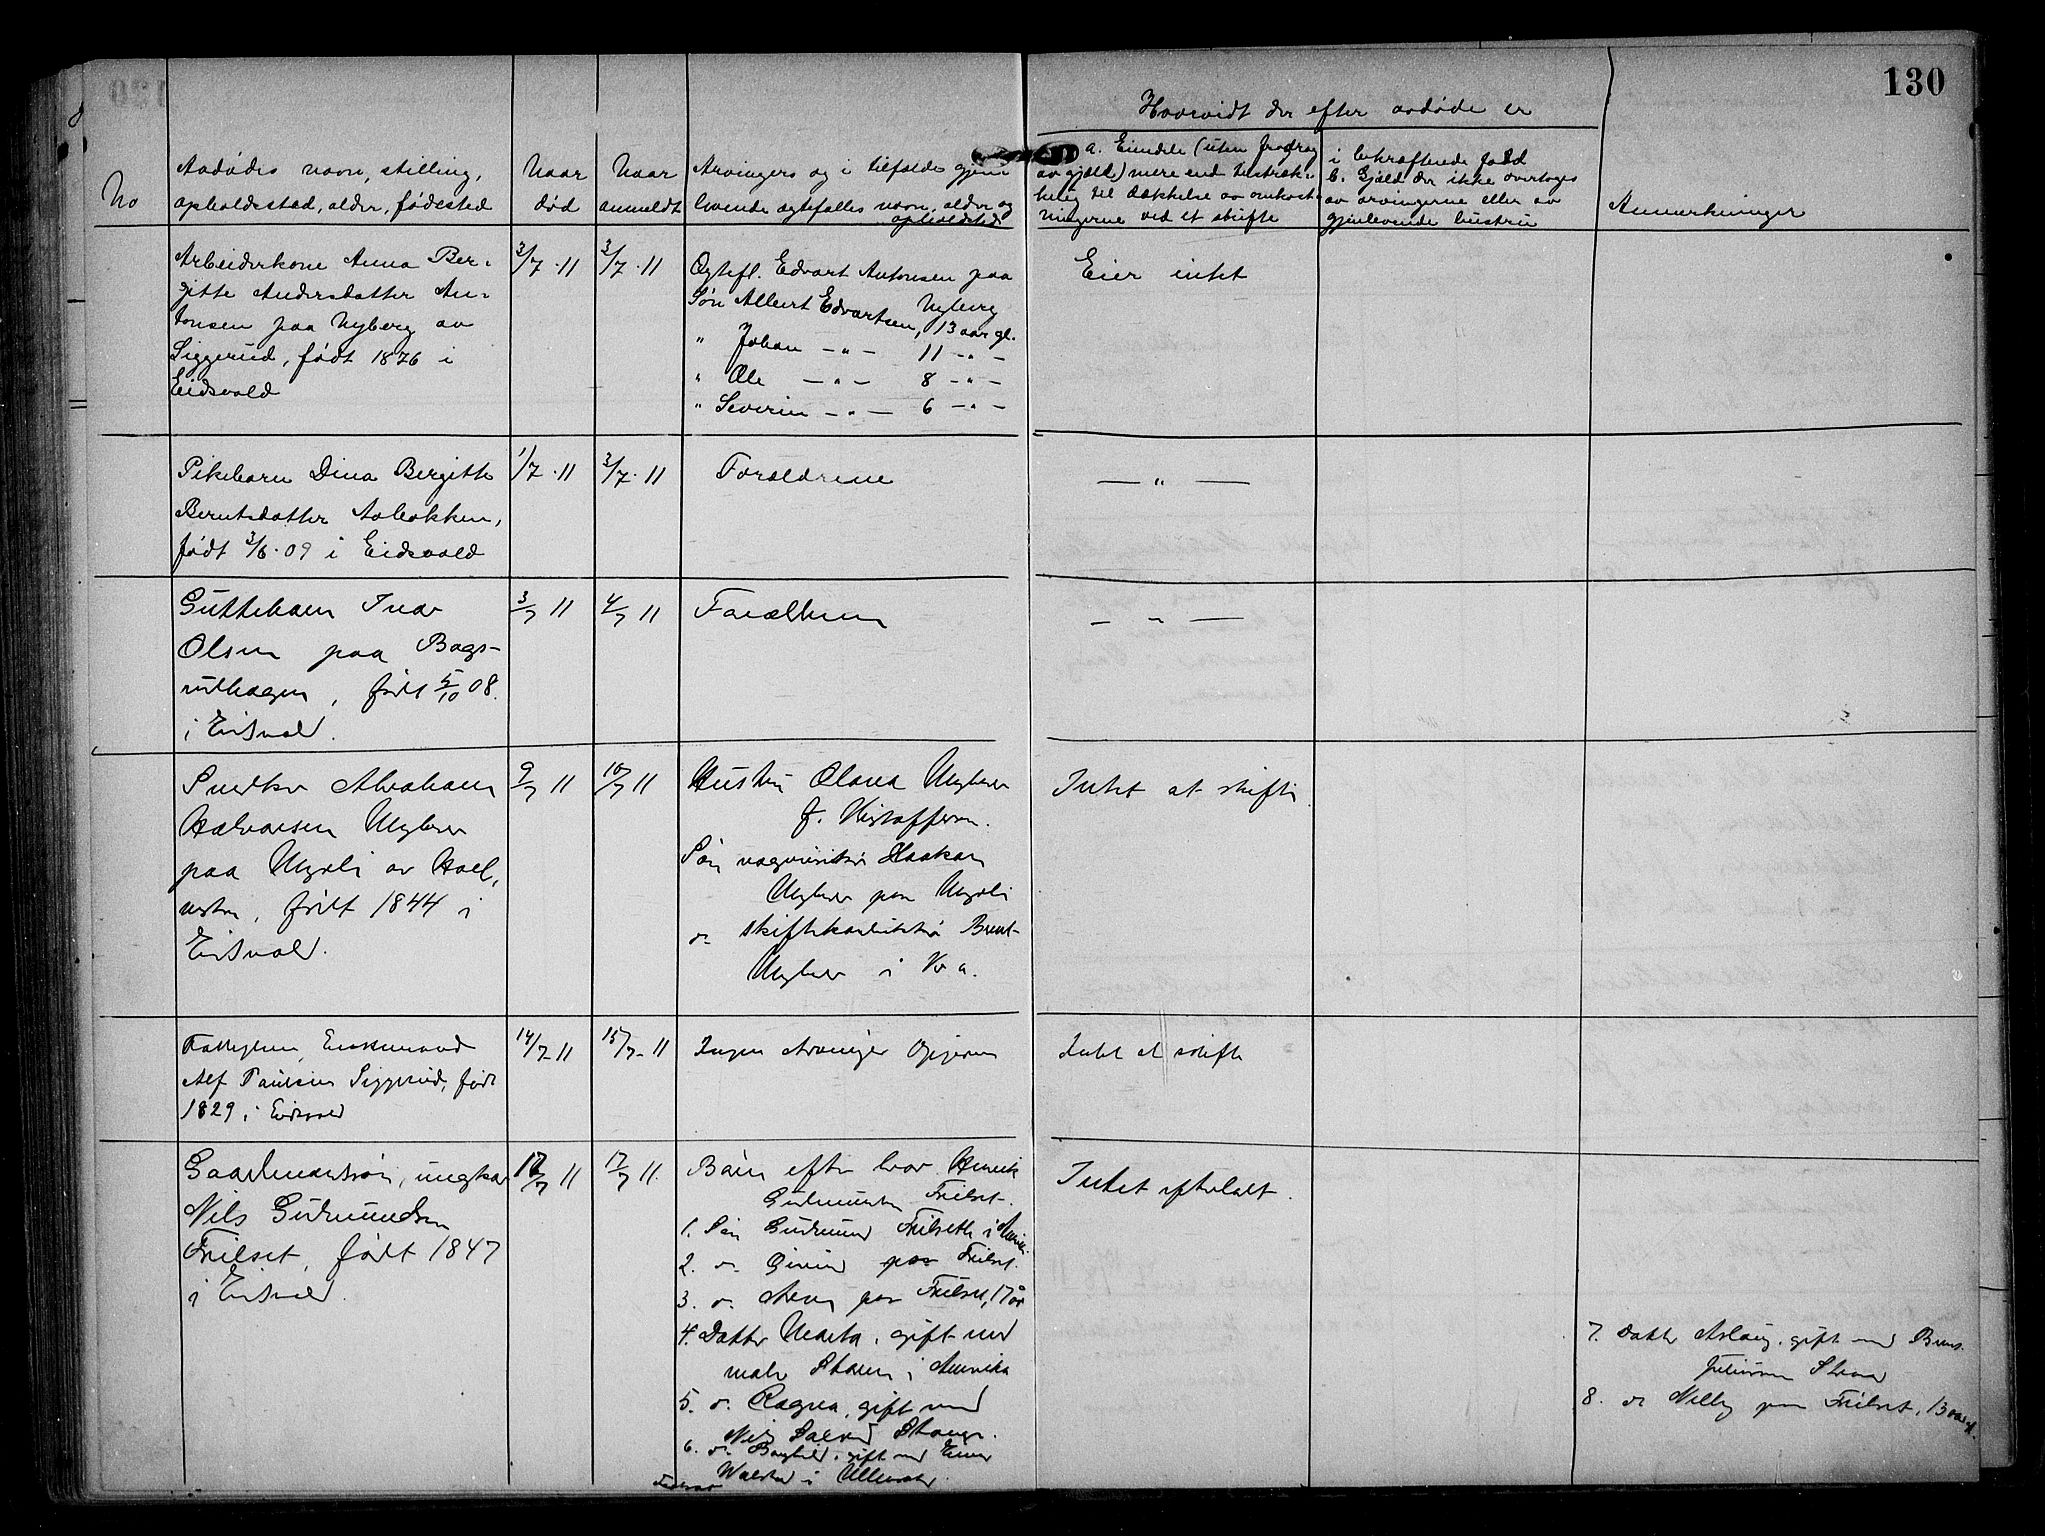 130
Hvorvidt der efter avdøde er
No
Avdødes navn, stilling,
opholdssted, alder, fødested
Naar
død
Naar
anmeldt
Arvingers og i tilfælde gjen-
levende egtefælles navn, alder og
opholdssted
a. Eiendele (uten fradrag
av gjæld) mere end tilstræk-
kelig til dækkelse av omkost-
ningerne ved et skifte
i bekræftende fald
b. Gjæld der ikke overtages
av arvingerne eller av
gjenlevende hustru
Anmerkninger
Arbeiderkone Anna Ber-
gitte Andersdatter An-
tonsen paa Nyberg av
Siggerud, født 1876 i
Eidsvold
3/7 · 11
3/7 · 11
Egtefl. Edvart Antonsen paa
Nyberg
Søn Albert Edvartsen, 13 aar gl.
" Johan — " — 11 — " —
" Ole — " — 8 — " —
" Severin — " — 6 — " —
Eier intet
Pikebarn Dina Bergitte
Berntsdatter Aabakken,
født 3/6 · 09 i Eidsvold
1/7 · 11
3/7 · 11
Forældrene
— " —
Guttebarn Ivar
Olsen paa Bags-
rudhagen, født 5/10 08.
i Eidsvold.
3/7 11
4/7 11
Forældrene
— " —
Snedker Abraham
Halvorsen Nyberg
paa Nyoli av Hoel,
vestre, født 1844 i
Eidsvold.
9/7 11
10/7 11
Hustru Olava Nyberg
f. Kristoffersen.
Søn vognvisitør Haakon
Nyberg paa Nyoli
do skiftekontrollør Bernt
Nyberg i Kra.
Intet at skifte
Fattiglem, Enkemand
Alf Paulsen Siggerud, født
1829 i Eidsvold
14/7 11
15/7 11
Ingen Arvinger Opgivne
Intet at skifte
Gaardmandssøn, ungkar
Nils Gudmundsen
Frilset, født 1847
i Eidsvold.
17/7 11
17/7 11.
Børn efter bror Henrik
Gudmundsen Frilset.
1. Søn Gudmund Frilseth i Amerika
2. do Eivind paa Frilset.
3. do Arne paa Frilset, 17 år
4. Datter Marta, gift med
Storen i Amerika
5. do Ragna, gift med
Nils Stange.
6. do Borghild, gift med Einar
Wolstad i Ullensaker.
Intet efterladt.
7. Datter Aslaug, gift med Bernt
Juliussen
8. do Nelly paa Frilset, 13 aar gl.